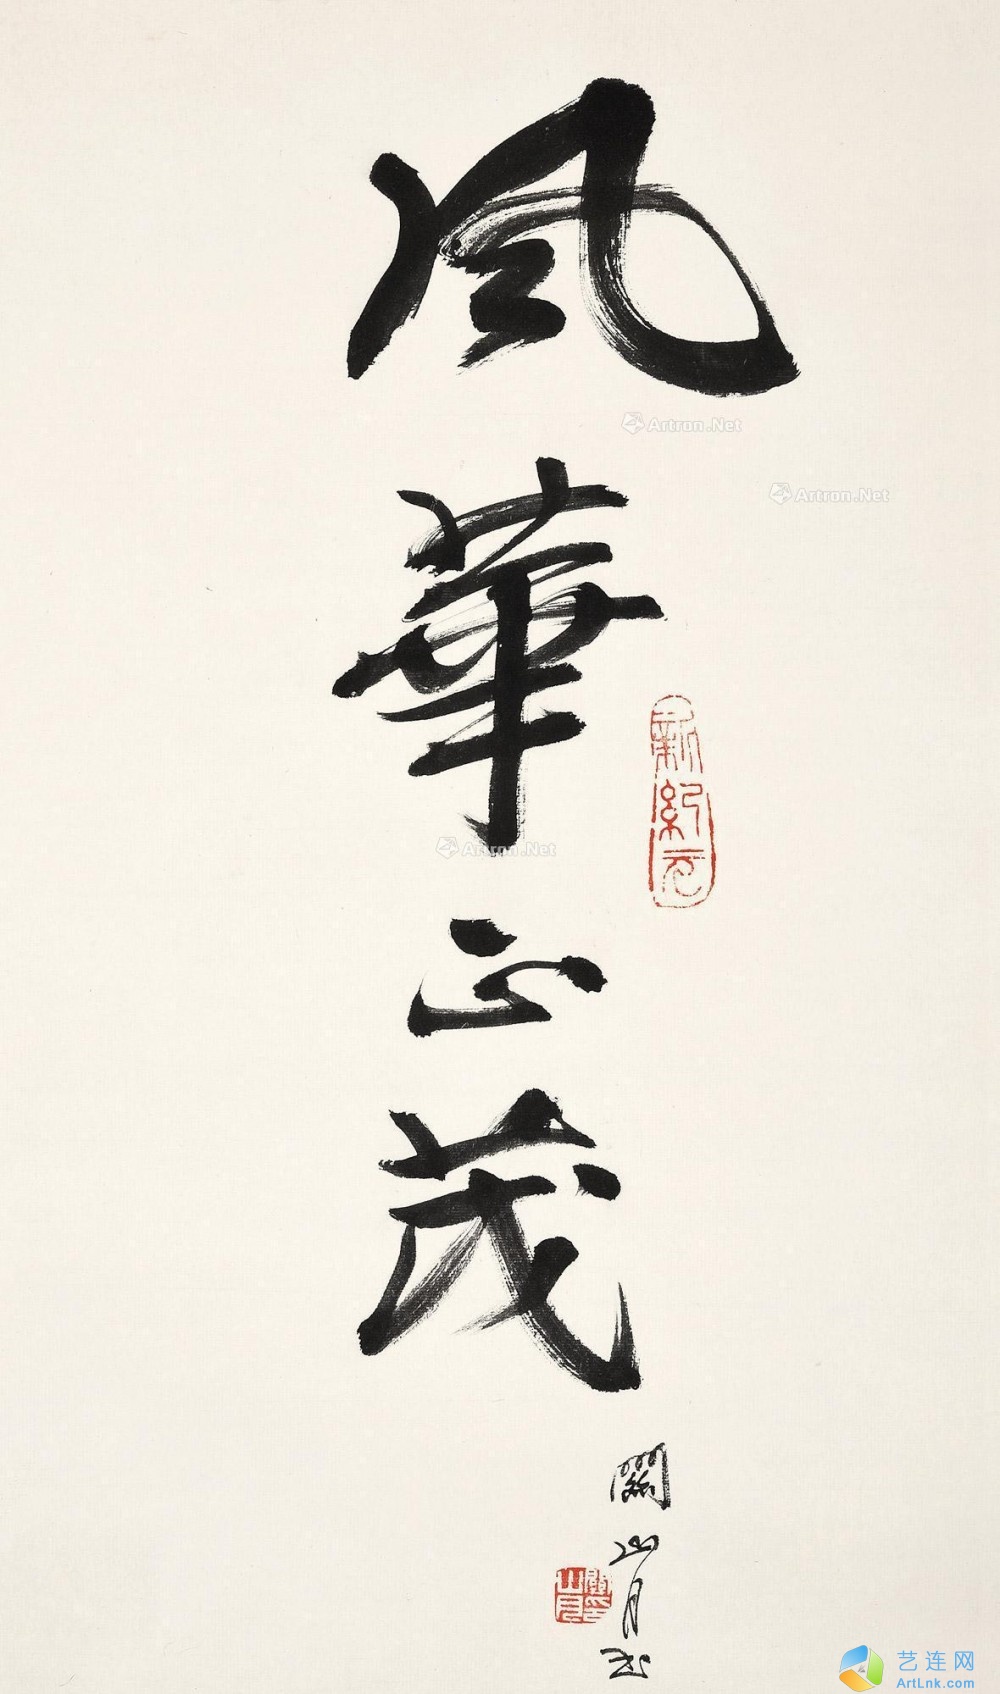 风華正茂
新紀元
關山月书
關山月印
Artron.Net
Artron.Net
Artron.Net
艺连网
ArtLnk.com